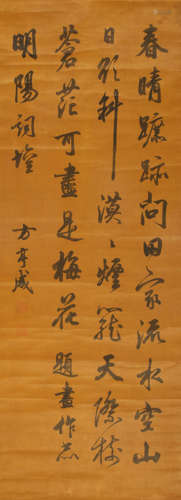 春晴蹤跡問田家流水空山
日欲斜漠〻煙籠天際樹
蒼茫可盡是梅花 題畫作
明陽詞壇
方亨咸